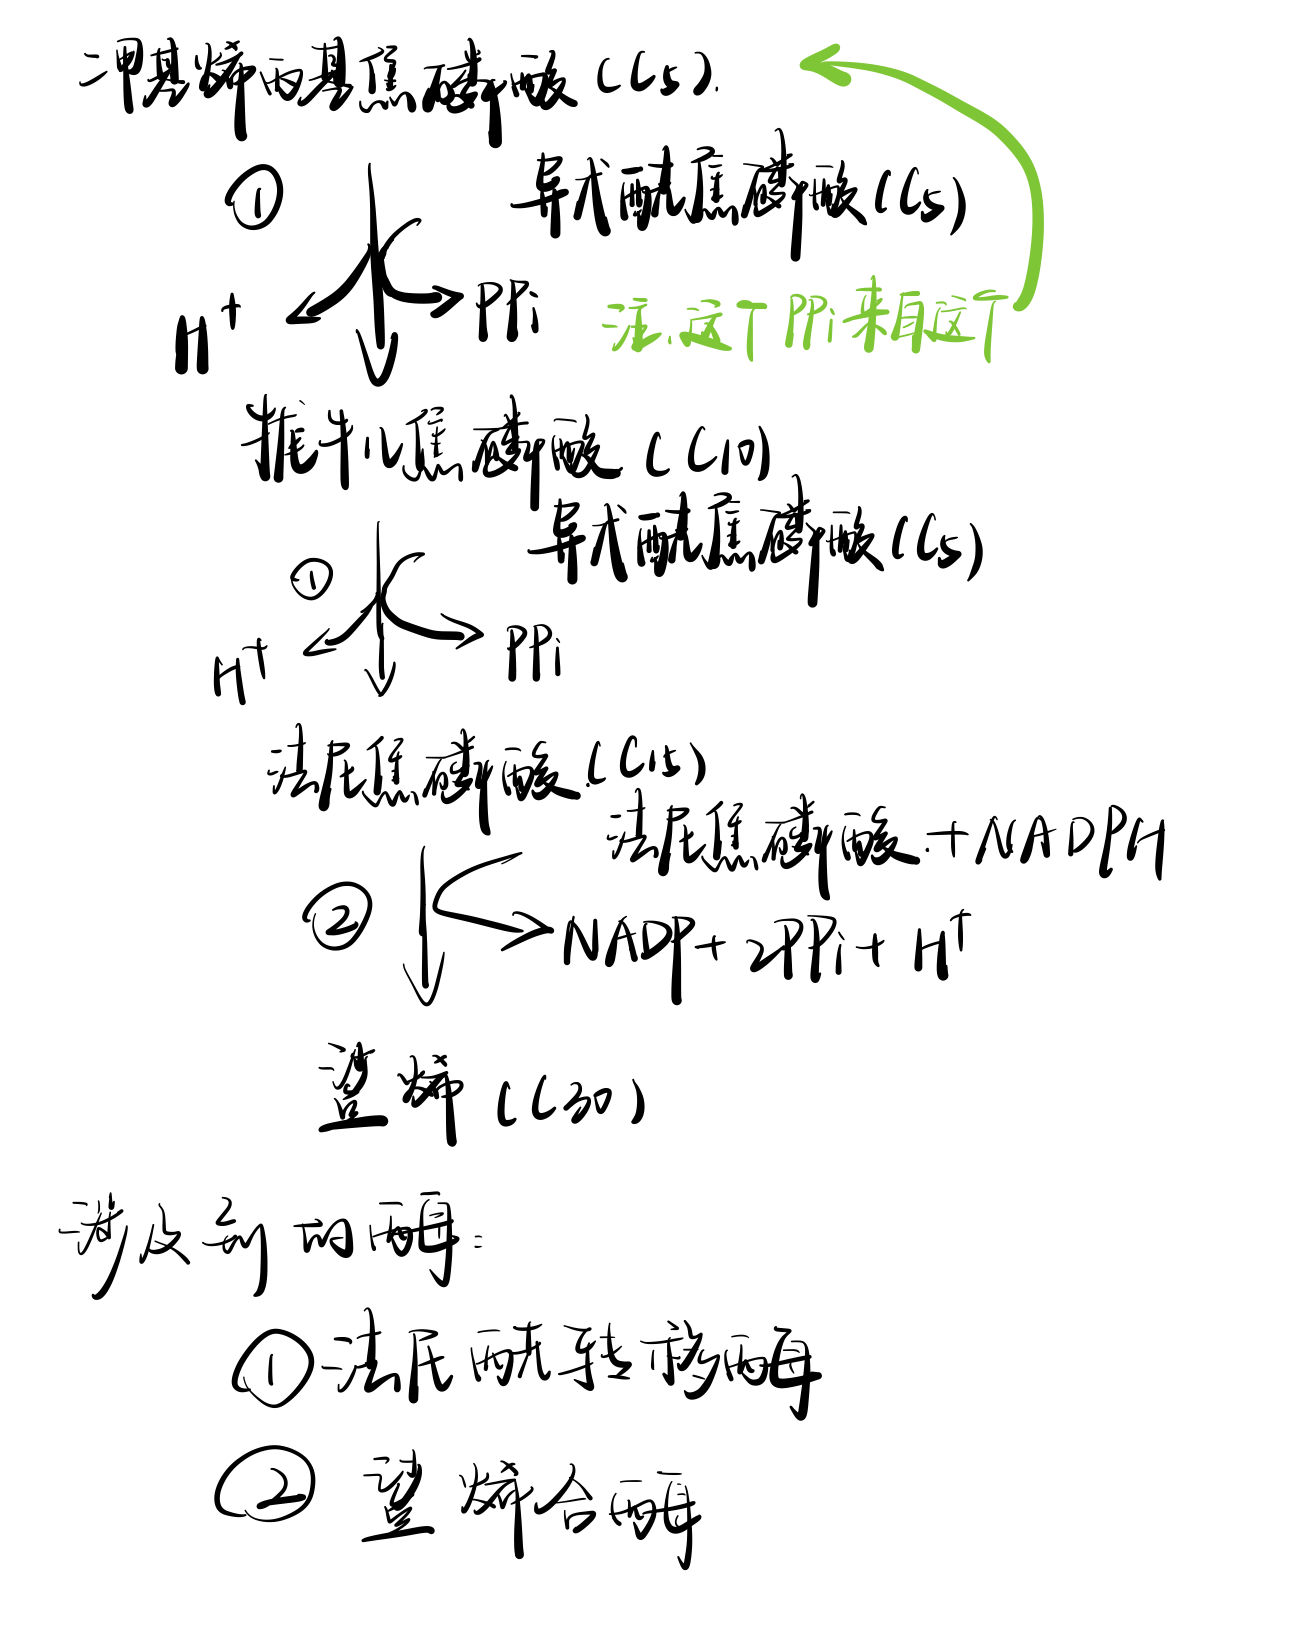 二甲基烯丙基焦磷酸(C5).
① 异戊酰焦磷酸(C5)
H+ PPi 注.这个PPi来自这个
牻牛儿焦磷酸(C10)
异戊酰焦磷酸(C5)
①
H+ PPi
法尼焦磷酸.(C15)
法尼焦磷酸.+NADPH
② NADP+2PPi+H+
鲨烯(C30)
涉及到的酶:
①法尼酰转移酶
②鲨烯合酶